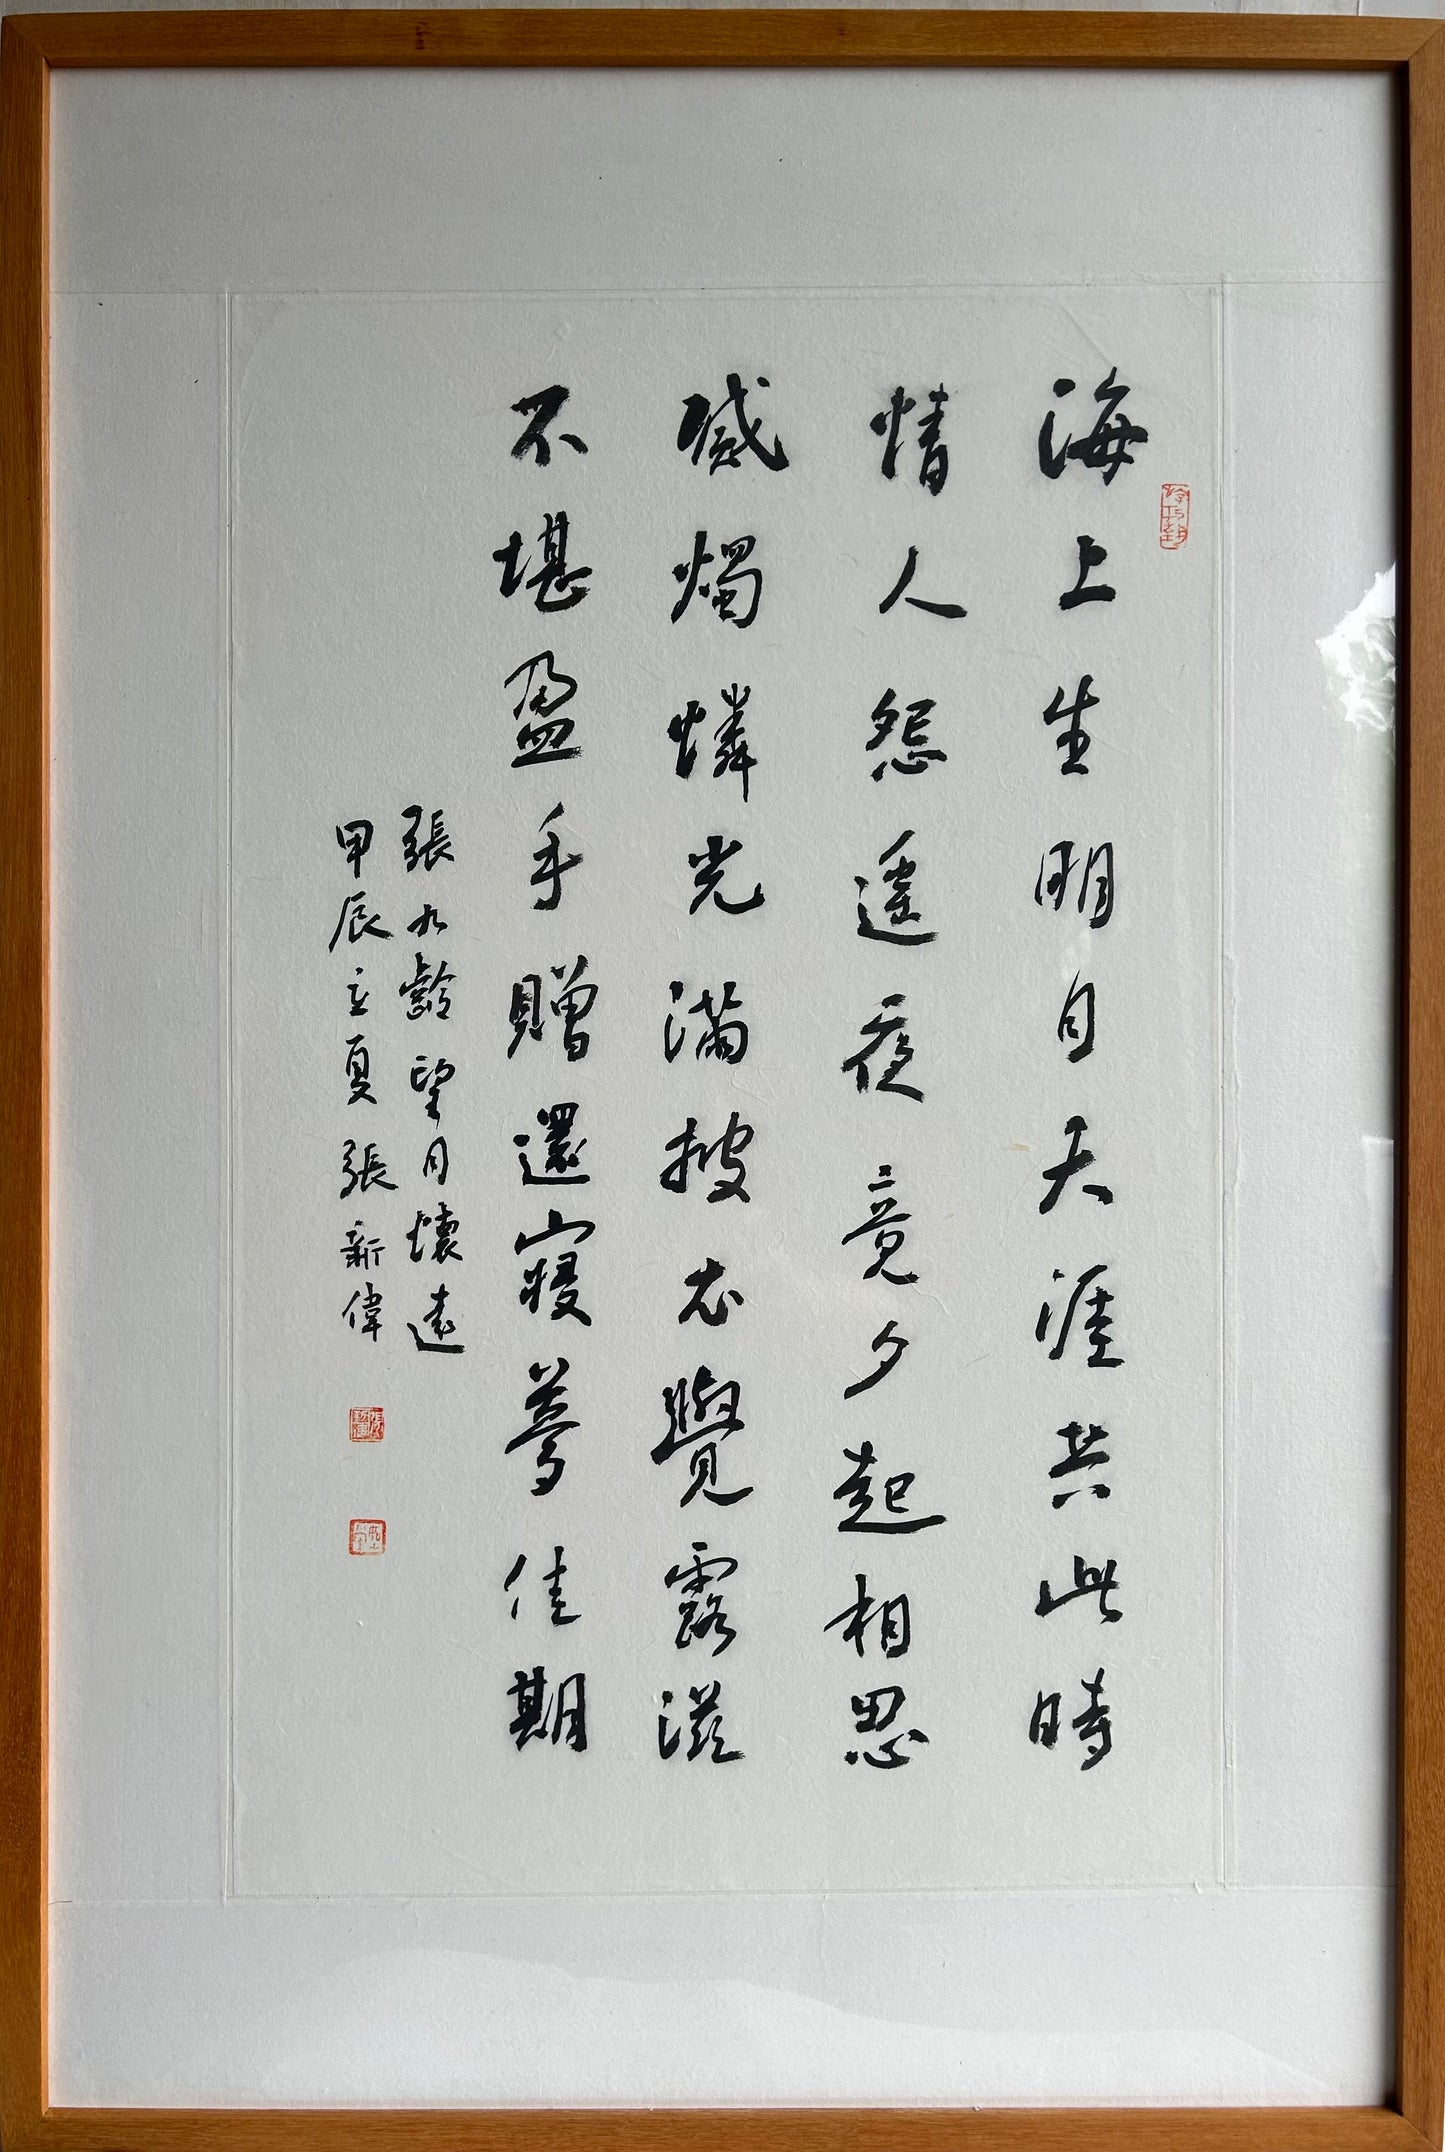 海上生明月天涯共此時
情人怨遙夜竟夕起相思
滅燭憐光滿披衣覺露滋
不堪盈手贈還寢夢佳期
張九齡望月懷遠
甲辰立夏張新偉